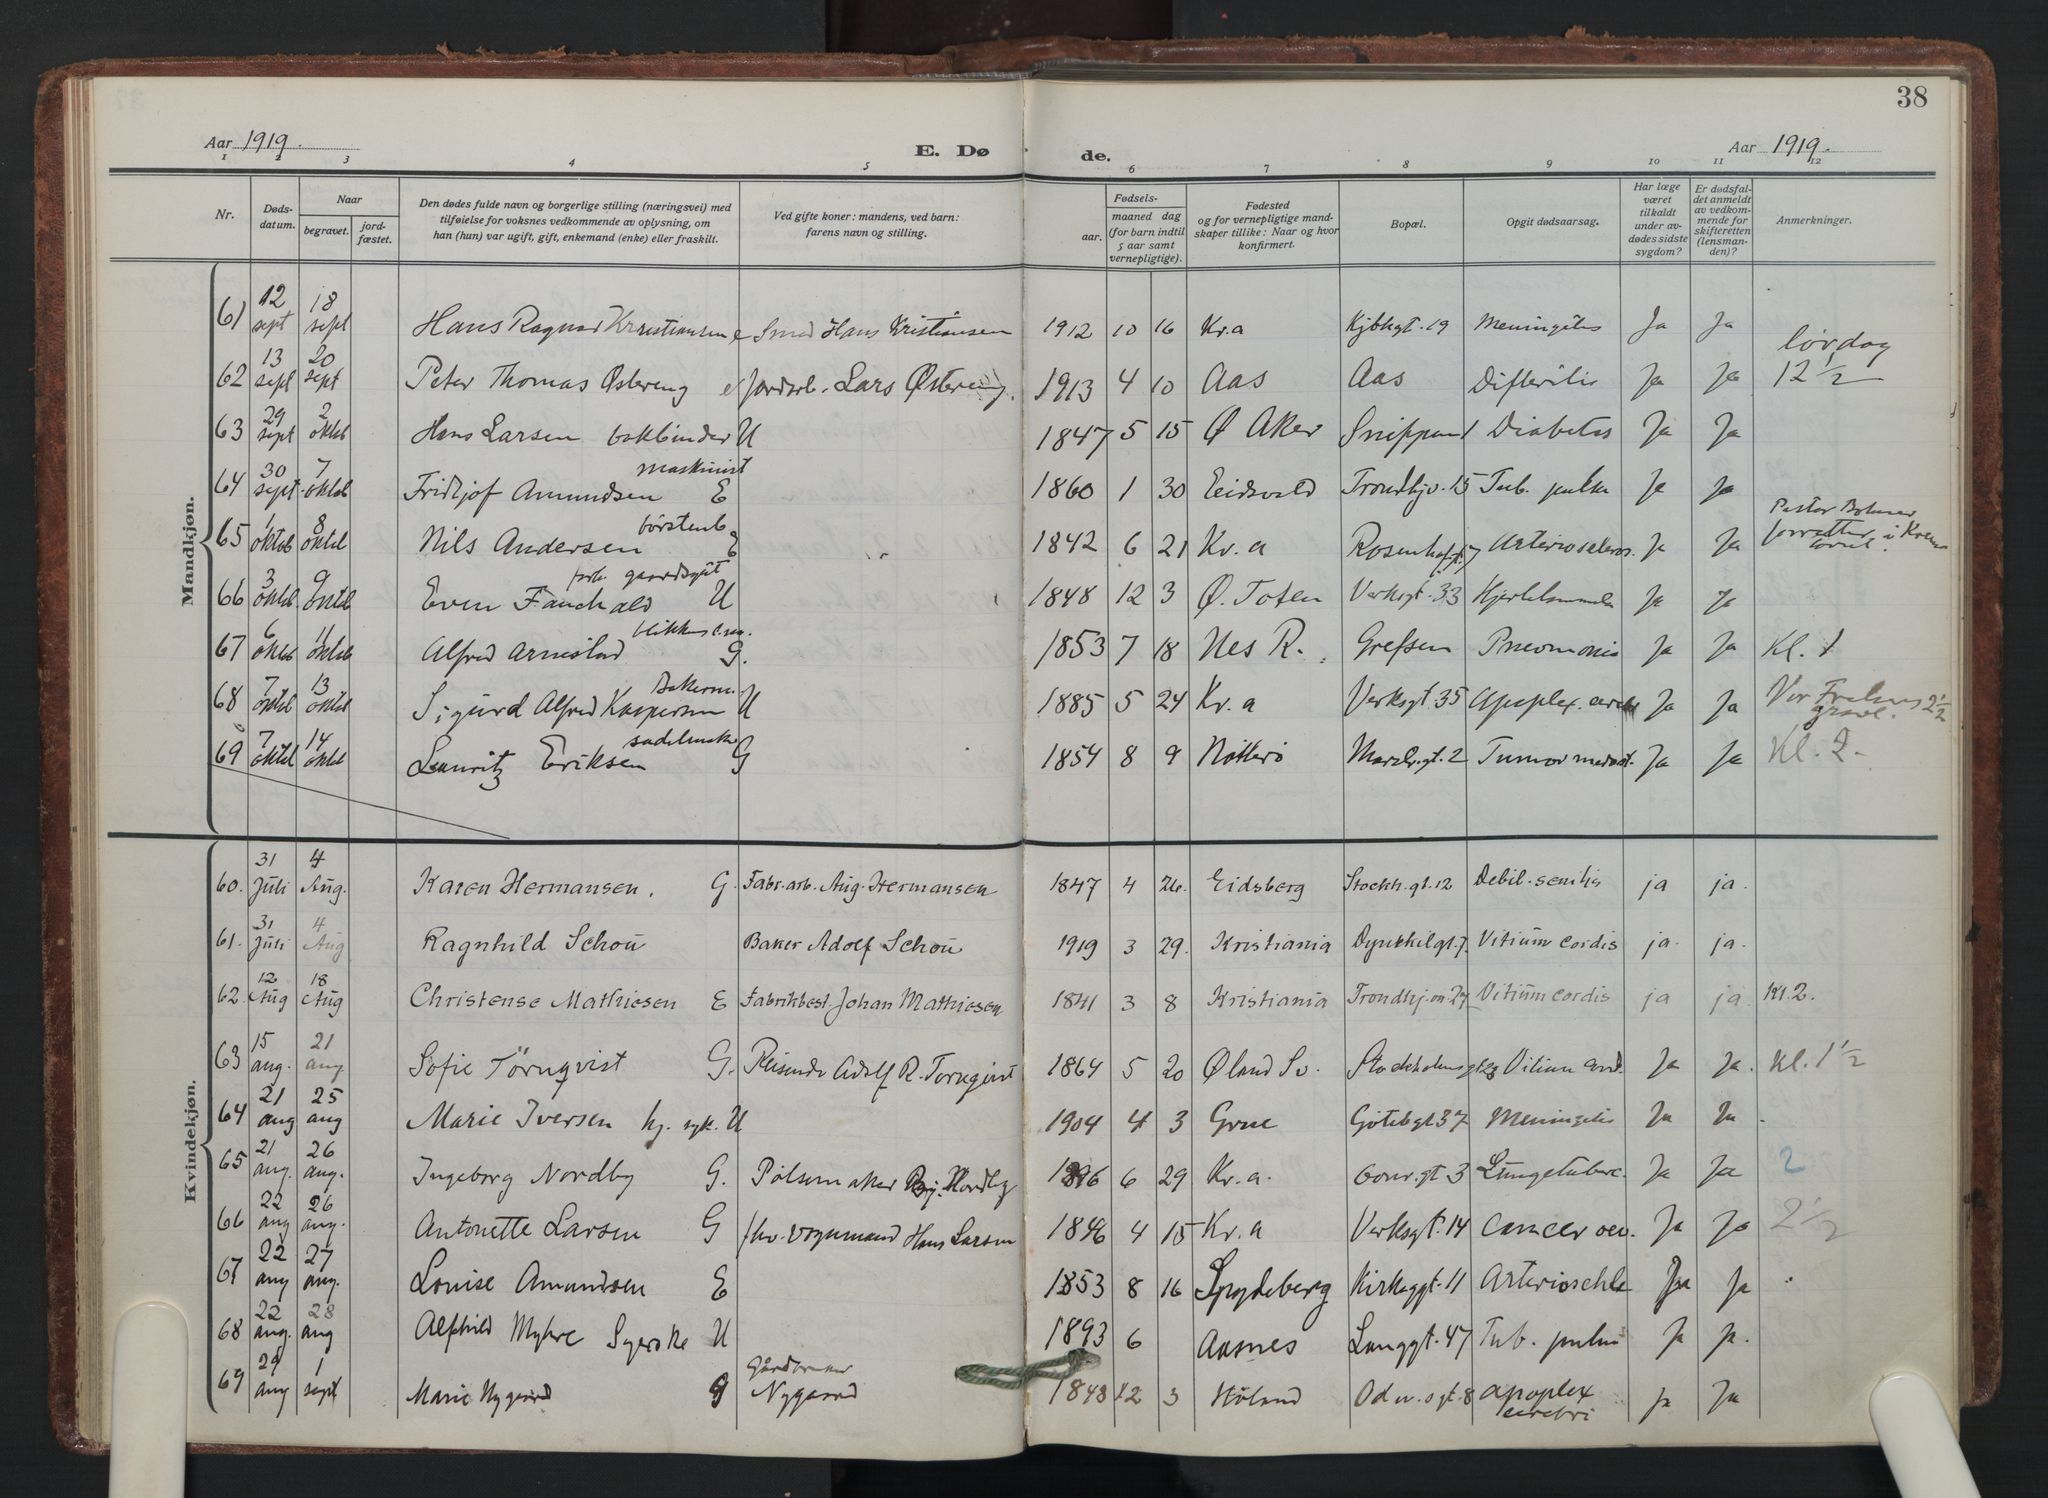 38
Aar 1919. E. Dø de. Aar 1919.
1 2 3 4 5 6 7 8 9 10 11 12
Nr. Døds-datum. Naar begravet. jord-fæstet. Den dødes fulde navn og borgerlige stilling (næringsvei) med tilføielse for voksnes vedkommende av oplysning, om han (hun) var ugift, gift, enkemand (enke) eller fraskilt. Ved gifte koner: mandens, ved barn: farens navn og stilling. Fødsels- aar. maaned dag (for barn indtil 5 aar samt vernepligtige). Fødested og for vernepligtige mandskaper tillike: Naar og hvor konfirmert. Bopæl. Opgit dødsaarsag. Har læge været tilkaldt under avdødes sidste sygdom? Er dødsfaldet anmeldt av vedkommende for skifteretten (lensmanden)? Anmerkninger.
Mandkjøn.
61 12 sept 18 sept Hans Ragnar Kristiansen Smed Hans Kristiansen 1912 10 16 Kr.a Kjblsgt. 19 Meningitis Ja Ja
62 13 sept 20 sept Peter Thomas Østereng Jordarb. Lars Østereng. 1913 4 10 Aas Aas Difteritis Ja Ja lørdag 12 1/2
63 29 sept 2 oktob Hans Larsen bokbinder U 1847 5 15 Ø Aker Diabetes Ja Ja
64 30 sept. 7 oktob Fridtjof Amundsen maskinist E 1860 1 30 Eidsvold Trondhjv. 15 Tub. pulm Ja Ja
65 1 oktob 8 oktob Nils Andersen børstenb E 1842 6 21 Kr.a Arterioscleros. Ja Ja Pastor forretter i Krematoriet.
66 3 oktob 9 oktob Even Fauchald U 1848 12 3 Ø. Toten Verksgt. 33 Ja Ja
67 6 oktob 11 oktob Alfred Arnestad G. 1853 7 18 Nes R. Grefsen Pneomonia Ja Ja Kl. 1
68 7 oktob 13 oktob Sigurd Alfred Kaspersen Bakerm. U 1885 5 24 Kr.a Verksgt. 35 Apoplex. cerebr Ja Ja Vor Frelsers gravl. 2 1/2
69 7 oktob 14 oktob Lauritz Eriksen G 1854 8 9 Nøtterø Tumor Ja Ja Kl. 2.
Kvindekjøn.
60. 31 Juli 4 Aug. Karen Hermansen. G. Fabr. arb. Aug. Hermansen 1847 4 26. Eidsberg Stockh. gt. 12 Debil. senilis ja ja.
61. 31 Juli 4 Aug Ragnhild Schou Baker Adolf Schou 1919 3 29. Kristiania Dynekilgt. 7. Vitium cordis ja. ja.
62. 12 Aug 18 Aug Christense Mathiesen E Fabrikbest. Johan Mathiesen 1841 3 8 Kristiania Trondhj.vn. 27 Vitium cordis ja ja. Kl. 2.
63 15 aug. 21 aug Sofie Törnqvist G. Reisende Adolf R. Tornqvist 1864 5 20 Øland Sv. Vitium cord. Ja Ja. Kl. 1 1/2
64 21 aug 25 aug Marie Iversen U 1904 4 3 Grue Gøtebgt 37 Meningitis Ja Ja.
65 21 aug. 26 aug. Ingeborg Nordby G. Pølsemaker Nordby 1896 6 29 Kr.a. Lungetuberc. Ja Ja 2
66 22 aug 26 aug. Antonette Larsen G fhv. vognmand Hans Larsen 1846 4 15 Kr.a Verksgt. 14 Cancer Ja Ja 2 1/2
67 22 aug 27 aug. Louise Amundsen E 1853 8 16 Spydeberg Kirkegt. 11 Ja Ja
68 22 aug. 28 aug Alfhild Myhre Syerske U 1893 6 Aasnes Langgt. 47 Tub. pulm Ja Ja.
69 29 aug 1 sept Marie Nygaard G Gårdbruker Nygaard 1848 12 3 Høland Apoplex cerebri Ja Ja